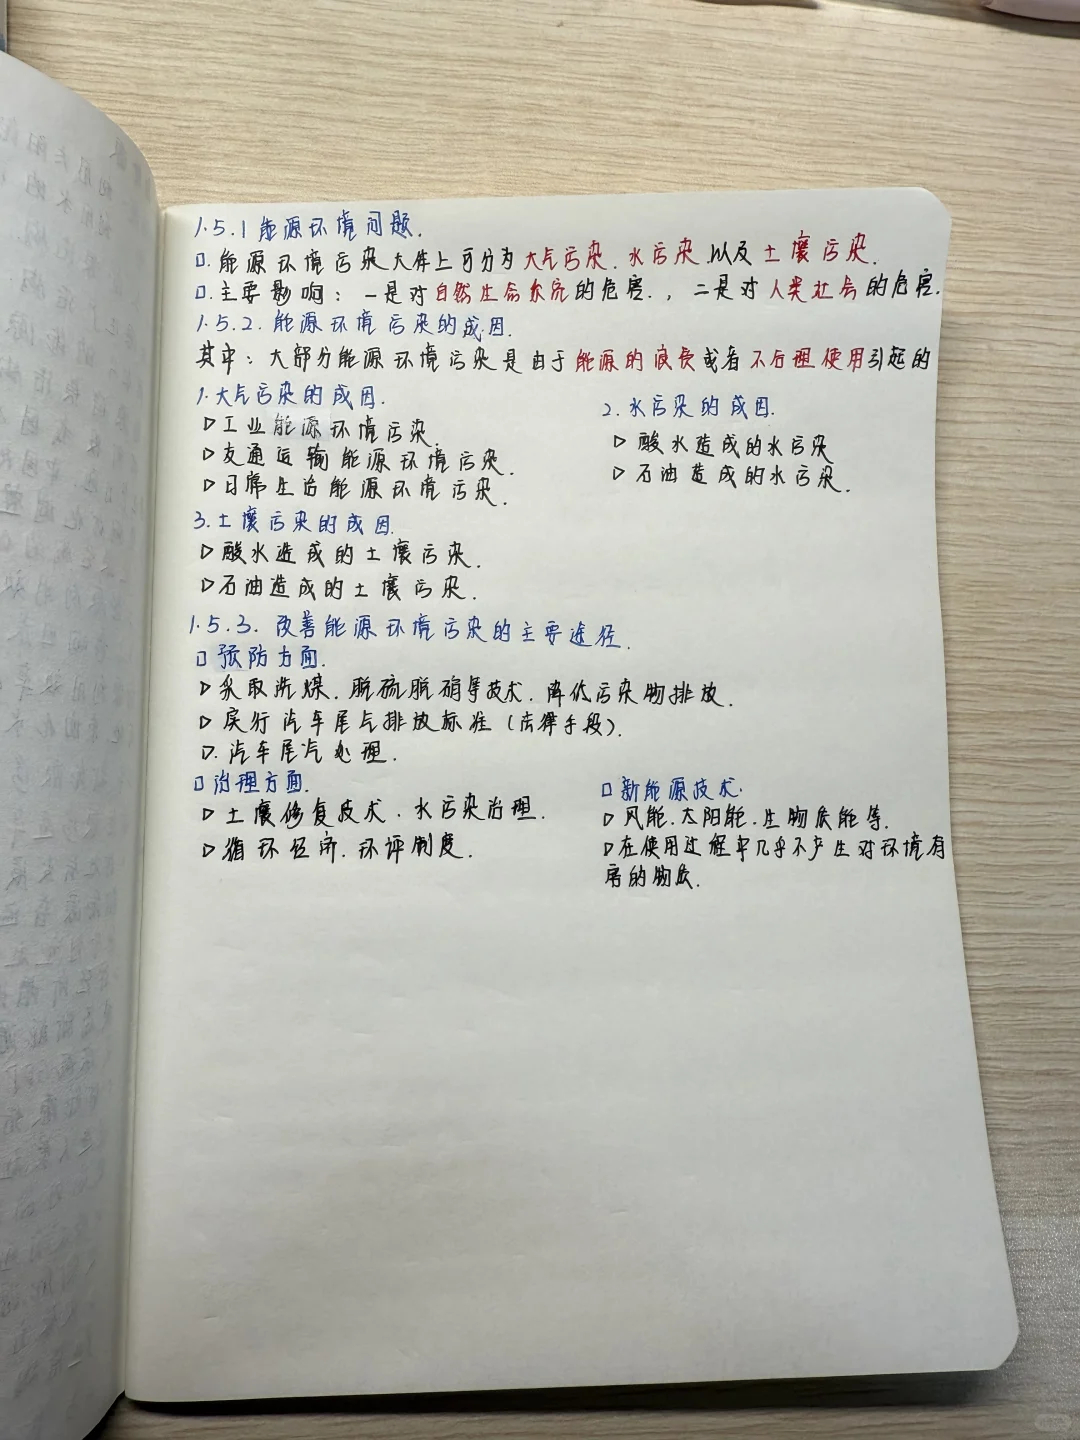 1.5.1 能源环境问题.
□. 能源环境污染大体上可分为大气污染.水污染.以及土壤污染.
□.主要影响：一是对自然生命系统的危害.，二是对人类社会的危害.
1.5.2. 能源环境污染的成因.
其中：大部分能源环境污染是由于能源的浪费或者不合理使用引起的
1.大气污染的成因.
▷工业能源环境污染.
▷交通运输能源环境污染.
▷日常生活能源环境污染.
2.水污染的成因.
▷酸水造成的水污染
▷石油造成的水污染.
3.土壤污染的成因.
▷酸水造成的土壤污染.
▷石油造成的土壤污染.
1.5.3. 改善能源环境污染的主要途径.
□ 预防方面.
▷采取洗煤.脱硫脱硝等技术.降低污染物排放.
▷实行汽车尾气排放标准（法律手段）.
▷.汽车尾汽处理.
□治理方面.
▷土壤修复技术.水污染治理.
▷循环经济.环评制度.
□新能源技术.
▷风能.太阳能.生物质能等.
▷在使用过程中几乎不产生对环境有
害的物质.